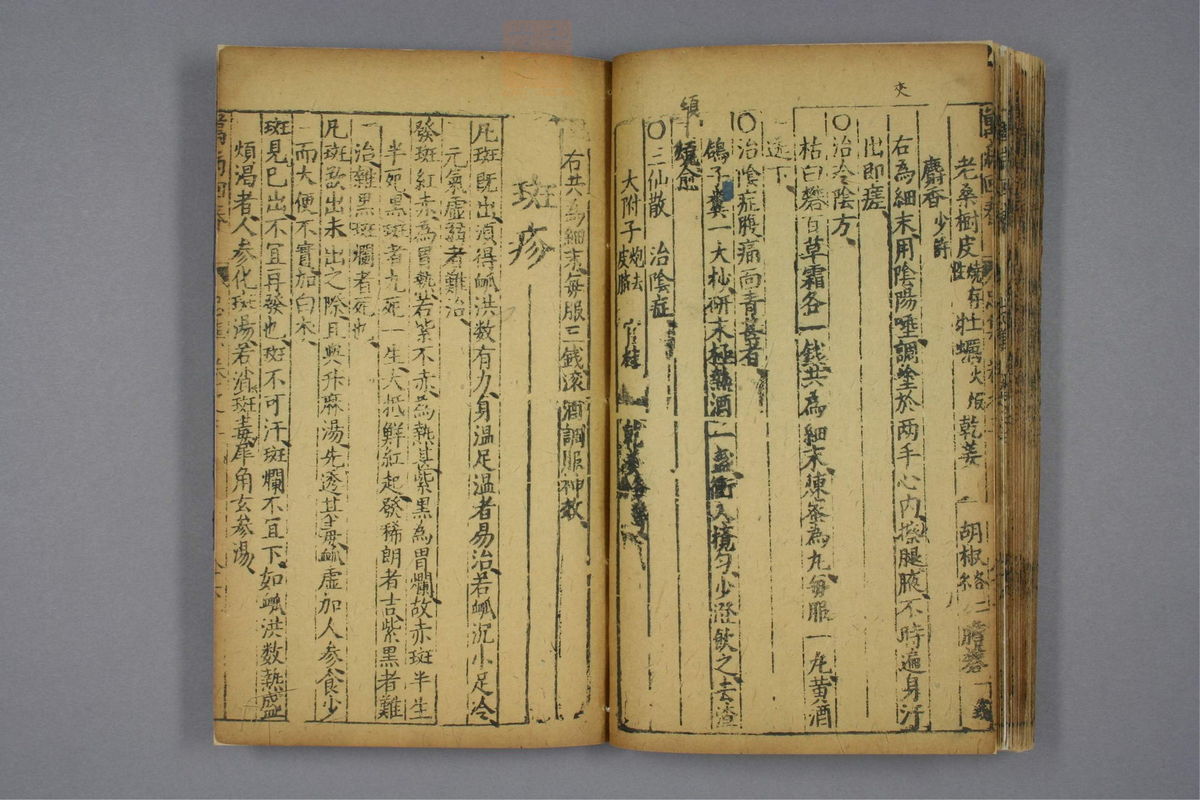 夾
老桑樹皮燒存性 牡蠣火煅 乾姜一 胡椒各二 膽礬一
麝香少許
右為細末用陰陽唾調塗於两手心内擦腿腋不時遍身汗
出即瘥
○治冷陰方
枯白礬百草霜各一錢共為細末煉蜜為丸每服一丸黄酒
送下
○治陰症腹痛面青甚者
鴿子糞一大抄研末極熱酒一盃衝入攪匀少澄飲之去渣
頓愈
頓
○三仙散 治陰症
大附子炮去皮臍 官桂 乾姜
右共為細末每服三錢滚酒調服神效
斑疹
凡斑既出湏得脉洪数有力身温足温者易治若脉沉小足冷
元氣虚弱者難治
發斑紅赤為胃熱若紫不赤為熱甚紫黑為胃爛故赤斑半生
半死黑斑者九死一生大抵鮮紅起發稀朗者吉紫黑者難
治雜黑斑爛者死也
一凡斑欲出未出之際且與升麻湯先透其毒脉虚加人参食少
而大便不實加白术
一斑見已出不宜再發也斑不可汗斑爛不宜下如脉洪数熱盛
煩渴者人参化斑湯若消斑毒犀角玄参湯
萬病回春